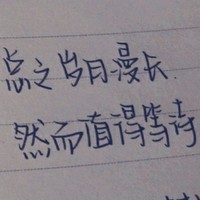 点之岁月漫长
然而值得等待